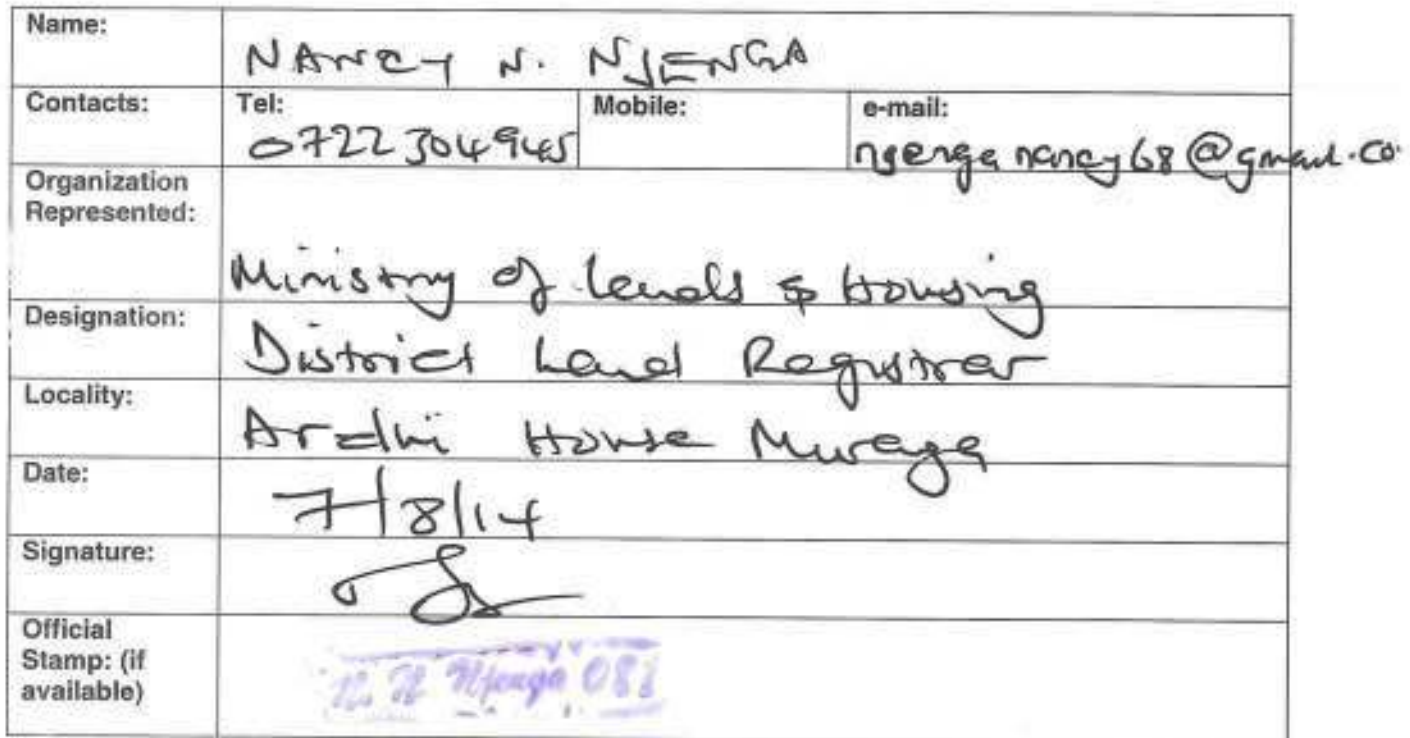 Name:
NANCY N. NJENGA
Contacts: Tel: Mobile: e-mail:
0722304945 njenganancy68@gmail.co
Organization
Represented:
Ministry of Lands & Housing
Designation:
District Land Registrar
Locality:
Ardhi House Muranga
Date:
7/8/14
Signature:
Official
Stamp: (if
available)
N. N. Njenga 081